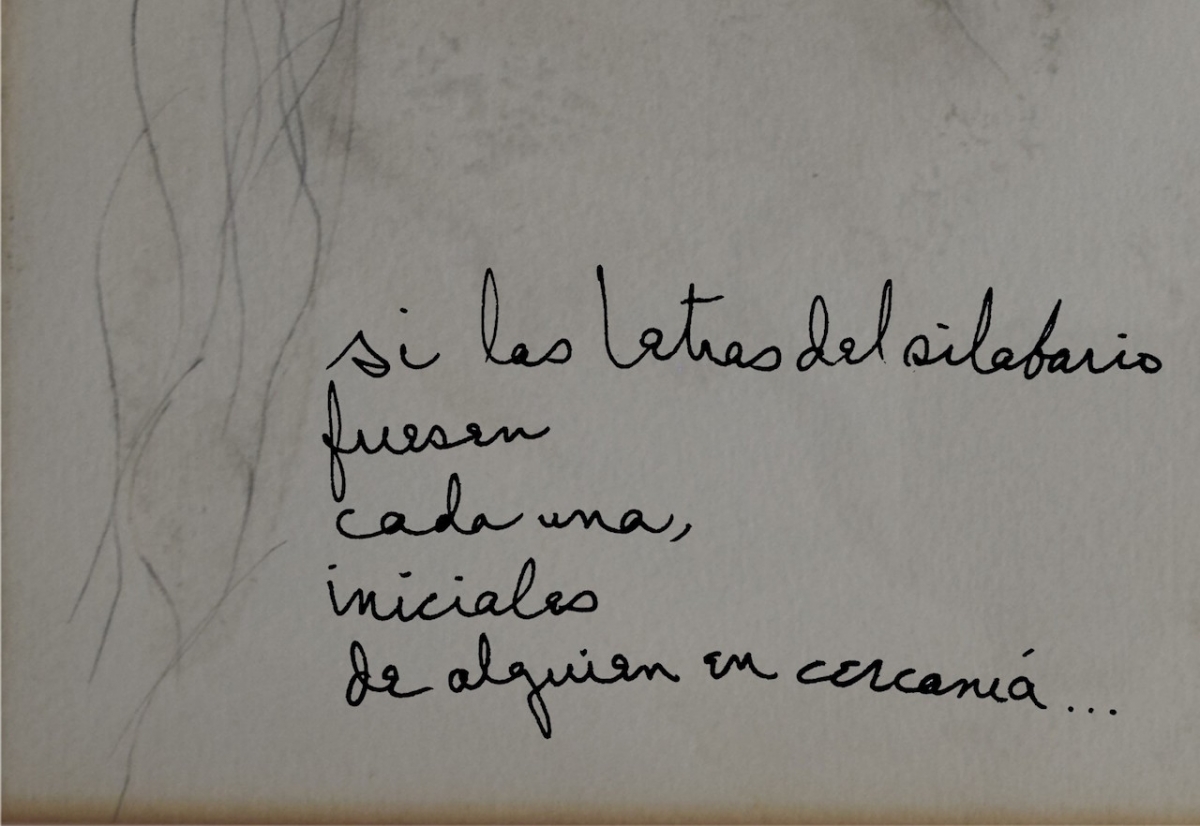 si las letras del silabario
fuesen
cada una,
iniciales
de alguien en cercaniá...